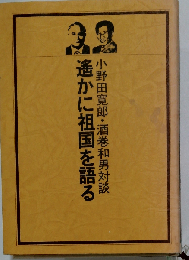 小野田寛郎・酒巻和男対談
遙かに祖国を語る